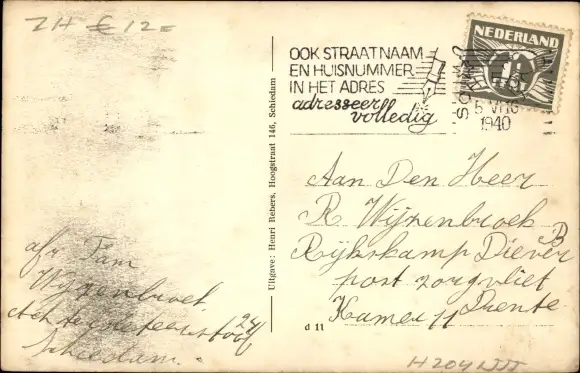 ZH € 12=
OOK STRAATNAAM
EN HUISNUMMER
IN HET ADRES
adresseer
volledig
NEDERLAND
5 VIII 6
1940
Uitgave: Henri Rebers, Hoogstraat 146, Schiedam
Aan Den Heer
R Wijzenbroek
Rijkskamp Diever B
post zorgvliet
Drente
Kamer 11
afz Tam
Wijzenbroek
24
Schiedam.
d 11